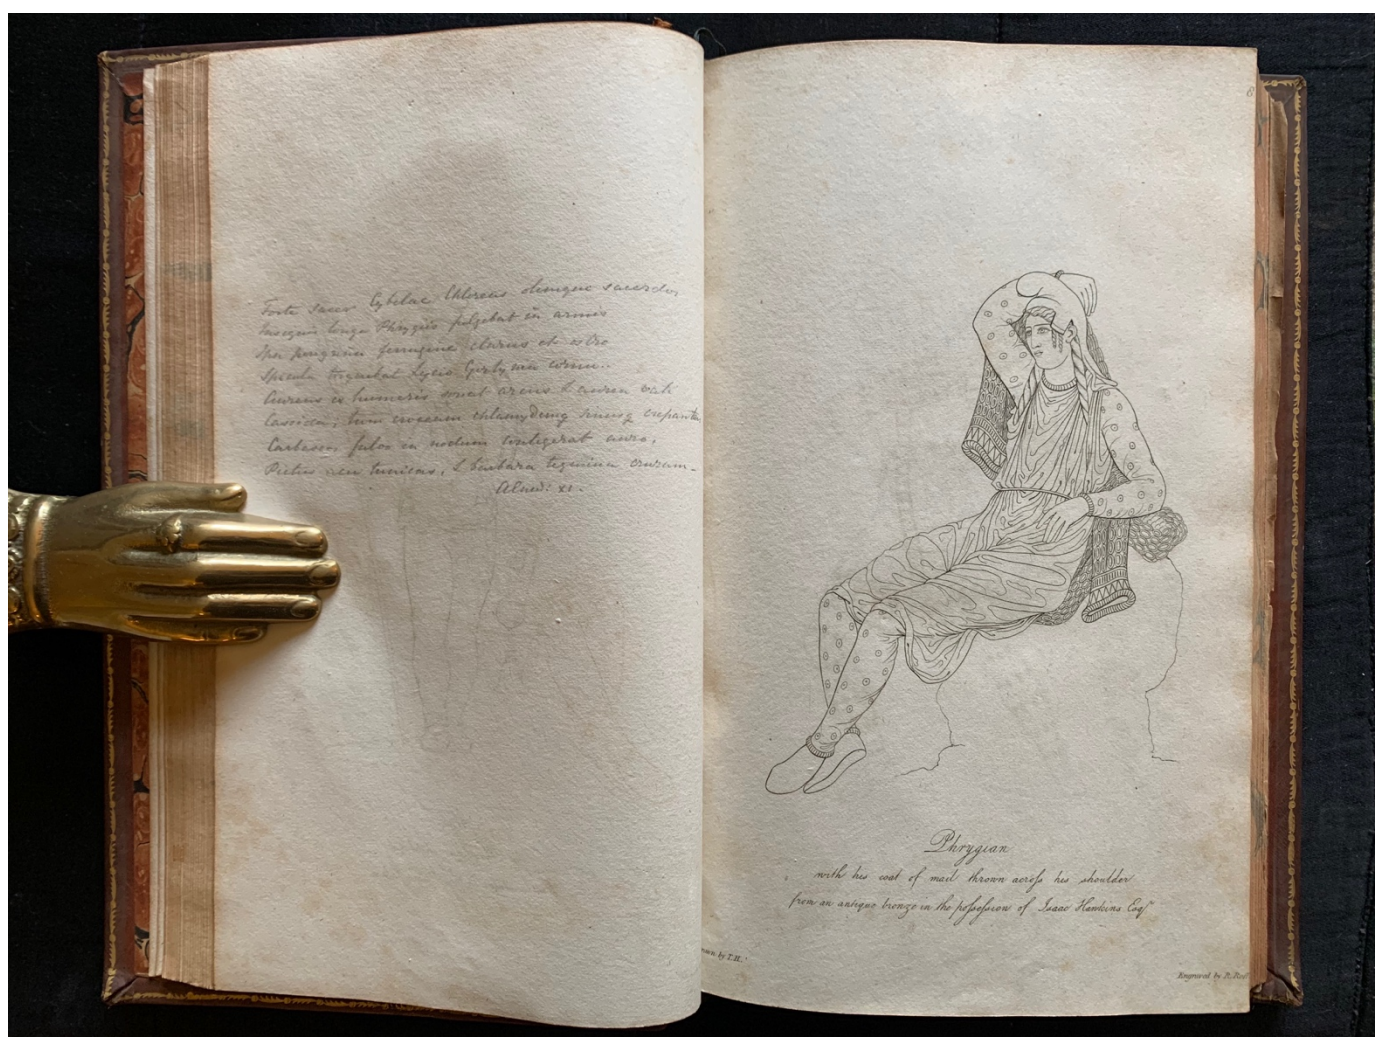 Forte sacer Cybelae Chloreus olimque sacerdos
Insignis longe Phrygiis fulgebat in armis
Ipse peregrina ferrugine clarus et ostro
Spicula torquebat Lycio Gortynia cornu.
Aureus ex humeris sonat arcus & aurea vati
Cassida; tum croceam chlamydemq sinusq crepantes
Carbaseos fulvo in nodum collegerat auro,
Pictus acu tunicas, & barbara tegmina crurum.
Aeneid: XI.
Phrygian
with his coat of mail thrown across his shoulder
from an antique bronze in the possession of Isaac Hawkins Esqr
by T.H.
Engraved by R.